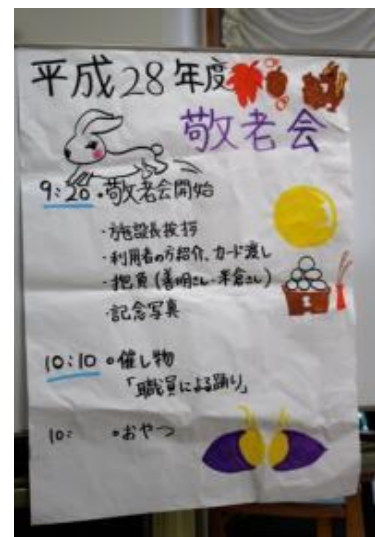 平成28年度
敬老会
9:20・敬老会開始
・施設長挨拶
・利用者の方紹介、カード渡し
・抱負(善明さん・米倉さん)
・記念写真
10:10 ・催し物
「職員による踊り」
10: ・おやつ